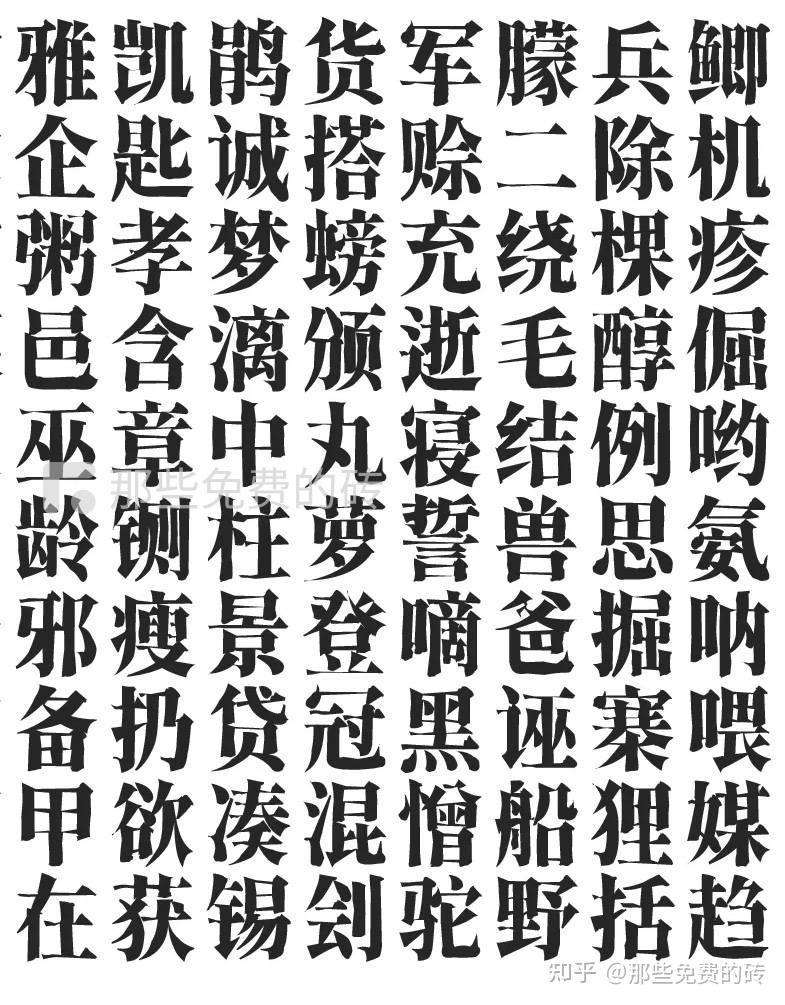 雅凯鹃货军朦兵鲫
企匙诚搭赊二除机
粥孝梦螃充绕棵疹
邑含漓颁逝毛醇倔
巫章中丸寝结例哟
那些免费的砖
龄铡柱萝誓兽思氨
邪瘦景登嘀爸掘呐
备扔贷冠黑诬寨喂
甲欲凑混憎船狸媒
在获锡刽驼野括趋
知乎 @那些免费的砖